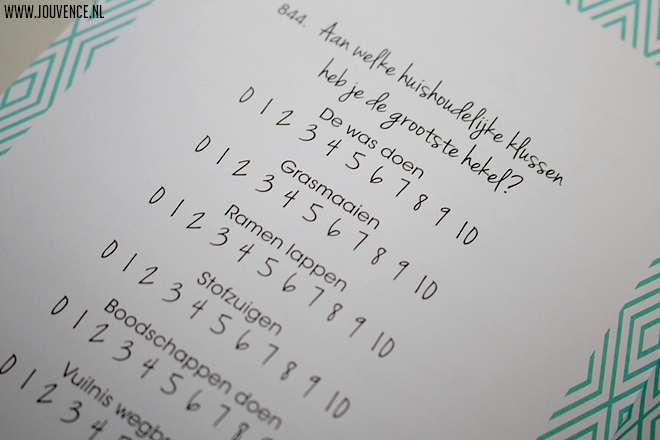 WWW.JOUVENCE.NL
844. Aan welke huishoudelijke klussen
heb je de grootste hekel?
De was doen
0 1 2 3 4 5 6 7 8 9 10
Grasmaaien
0 1 2 3 4 5 6 7 8 9 10
Ramen lappen
0 1 2 3 4 5 6 7 8 9 10
Stofzuigen
0 1 2 3 4 5 6 7 8 9 10
Boodschappen doen
0 1 2 3 4 5 6 7 8
Vuilnis
0 1 2 3 4